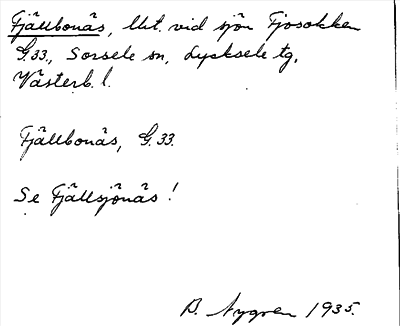 Fjällbonäs, llt. vid sjön Fjosokken
G.33., Sorsele sn, Lycksele tg.
Västerb. l.
Fjällbonäs, G.33.
Se Fjällsjönäs!
B. Nygren 1935.